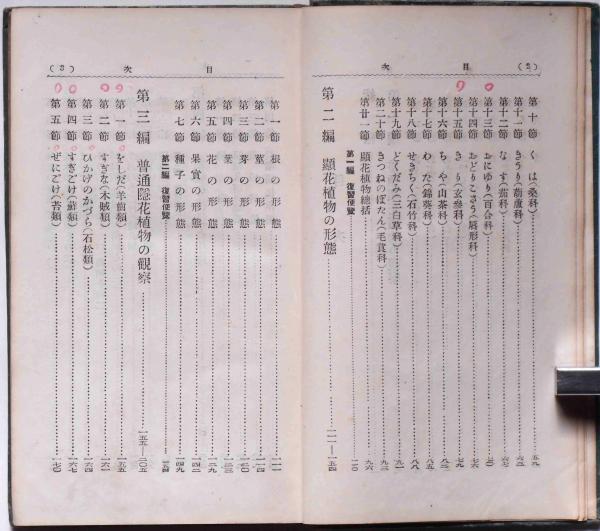 (2) 目次
第十節 くは(桑科)……五九
第十一節 きうり(葫蘆科)……六三
第十二節 なす(茄科)……六七
第十三節 おにゆり(百合科)……七〇
第十四節 おどりこさう(唇形科)……七六
第十五節 きり(玄參科)……七九
第十六節 ちや(山茶科)……八二
第十七節 わた(錦葵科)……八五
第十八節 せきちく(石竹科)……八八
第十九節 どくだみ(三白草科)……九一
第二十節 きつねのぼたん(毛茛科)……九三
第廿一節 顯花植物總括……九六
第一編 復習便覽……一一〇
第二編 顯花植物の形態……一一一—一五四
目次 (3)
第一節 根の形態……一一一
第二節 莖の形態……一一四
第三節 芽の形態……一二〇
第四節 葉の形態……一二三
第五節 花の形態……一二九
第六節 果實の形態……一四二
第七節 種子の形態……一四九
第二編 復習便覽……一五四
第三編 普通隱花植物の觀察……一五五—二〇五
第一節 をしだ(羊齒類)……一五五
第二節 すぎな(木賊類)……一六一
第三節 ひかげのかづら(石松類)……一六四
第四節 すぎごけ(蘚類)……一六七
第五節 ぜにごけ(苔類)……一七〇